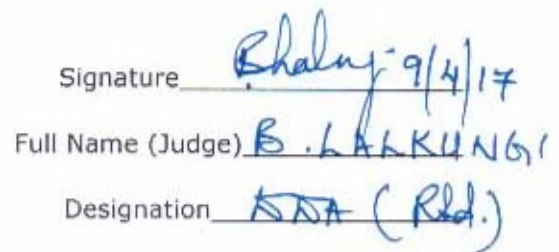 Signature 9/4/17
Full Name (Judge) B. LALKUNGI
Designation DDA (Rtd.)